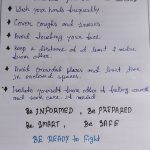 Wash your hands frequently
Cover coughs and sneezes
Avoid touching your face
Keep a distance of at least 1 meter
from other.
Avoid crowded places and limit time
in enclosed spaces.
Isolate yourself from other if feeling unwell
and seek care if needed
Be INFORMED, Be PREPARED
Be SMART, Be SAFE
BE READY to Fight